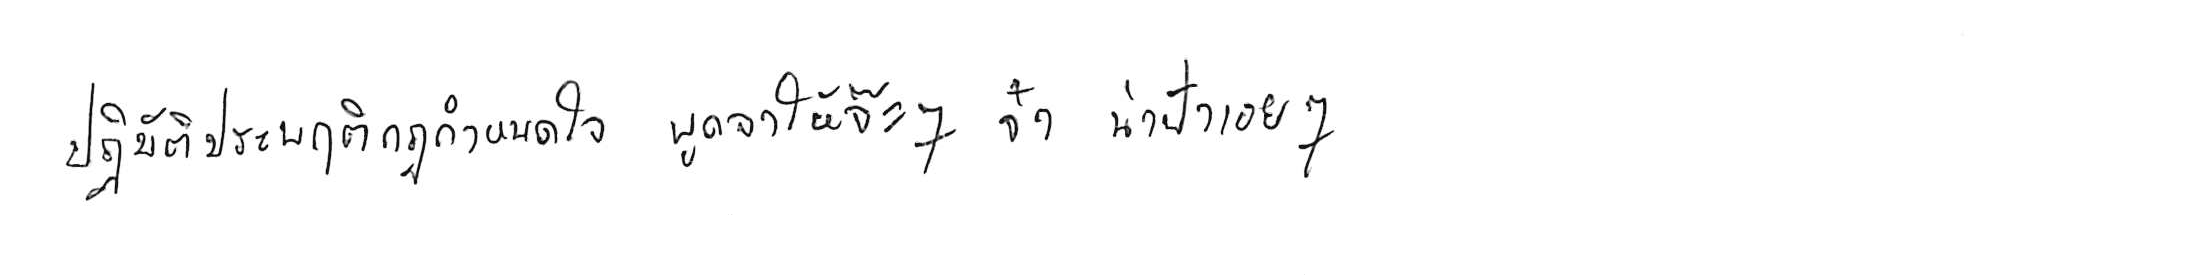 ปฏิบัติประพฤติกฎกำหนดใจ พูดจาให้จ๊ะๆ จ๋า น่าฟังเอยๆ